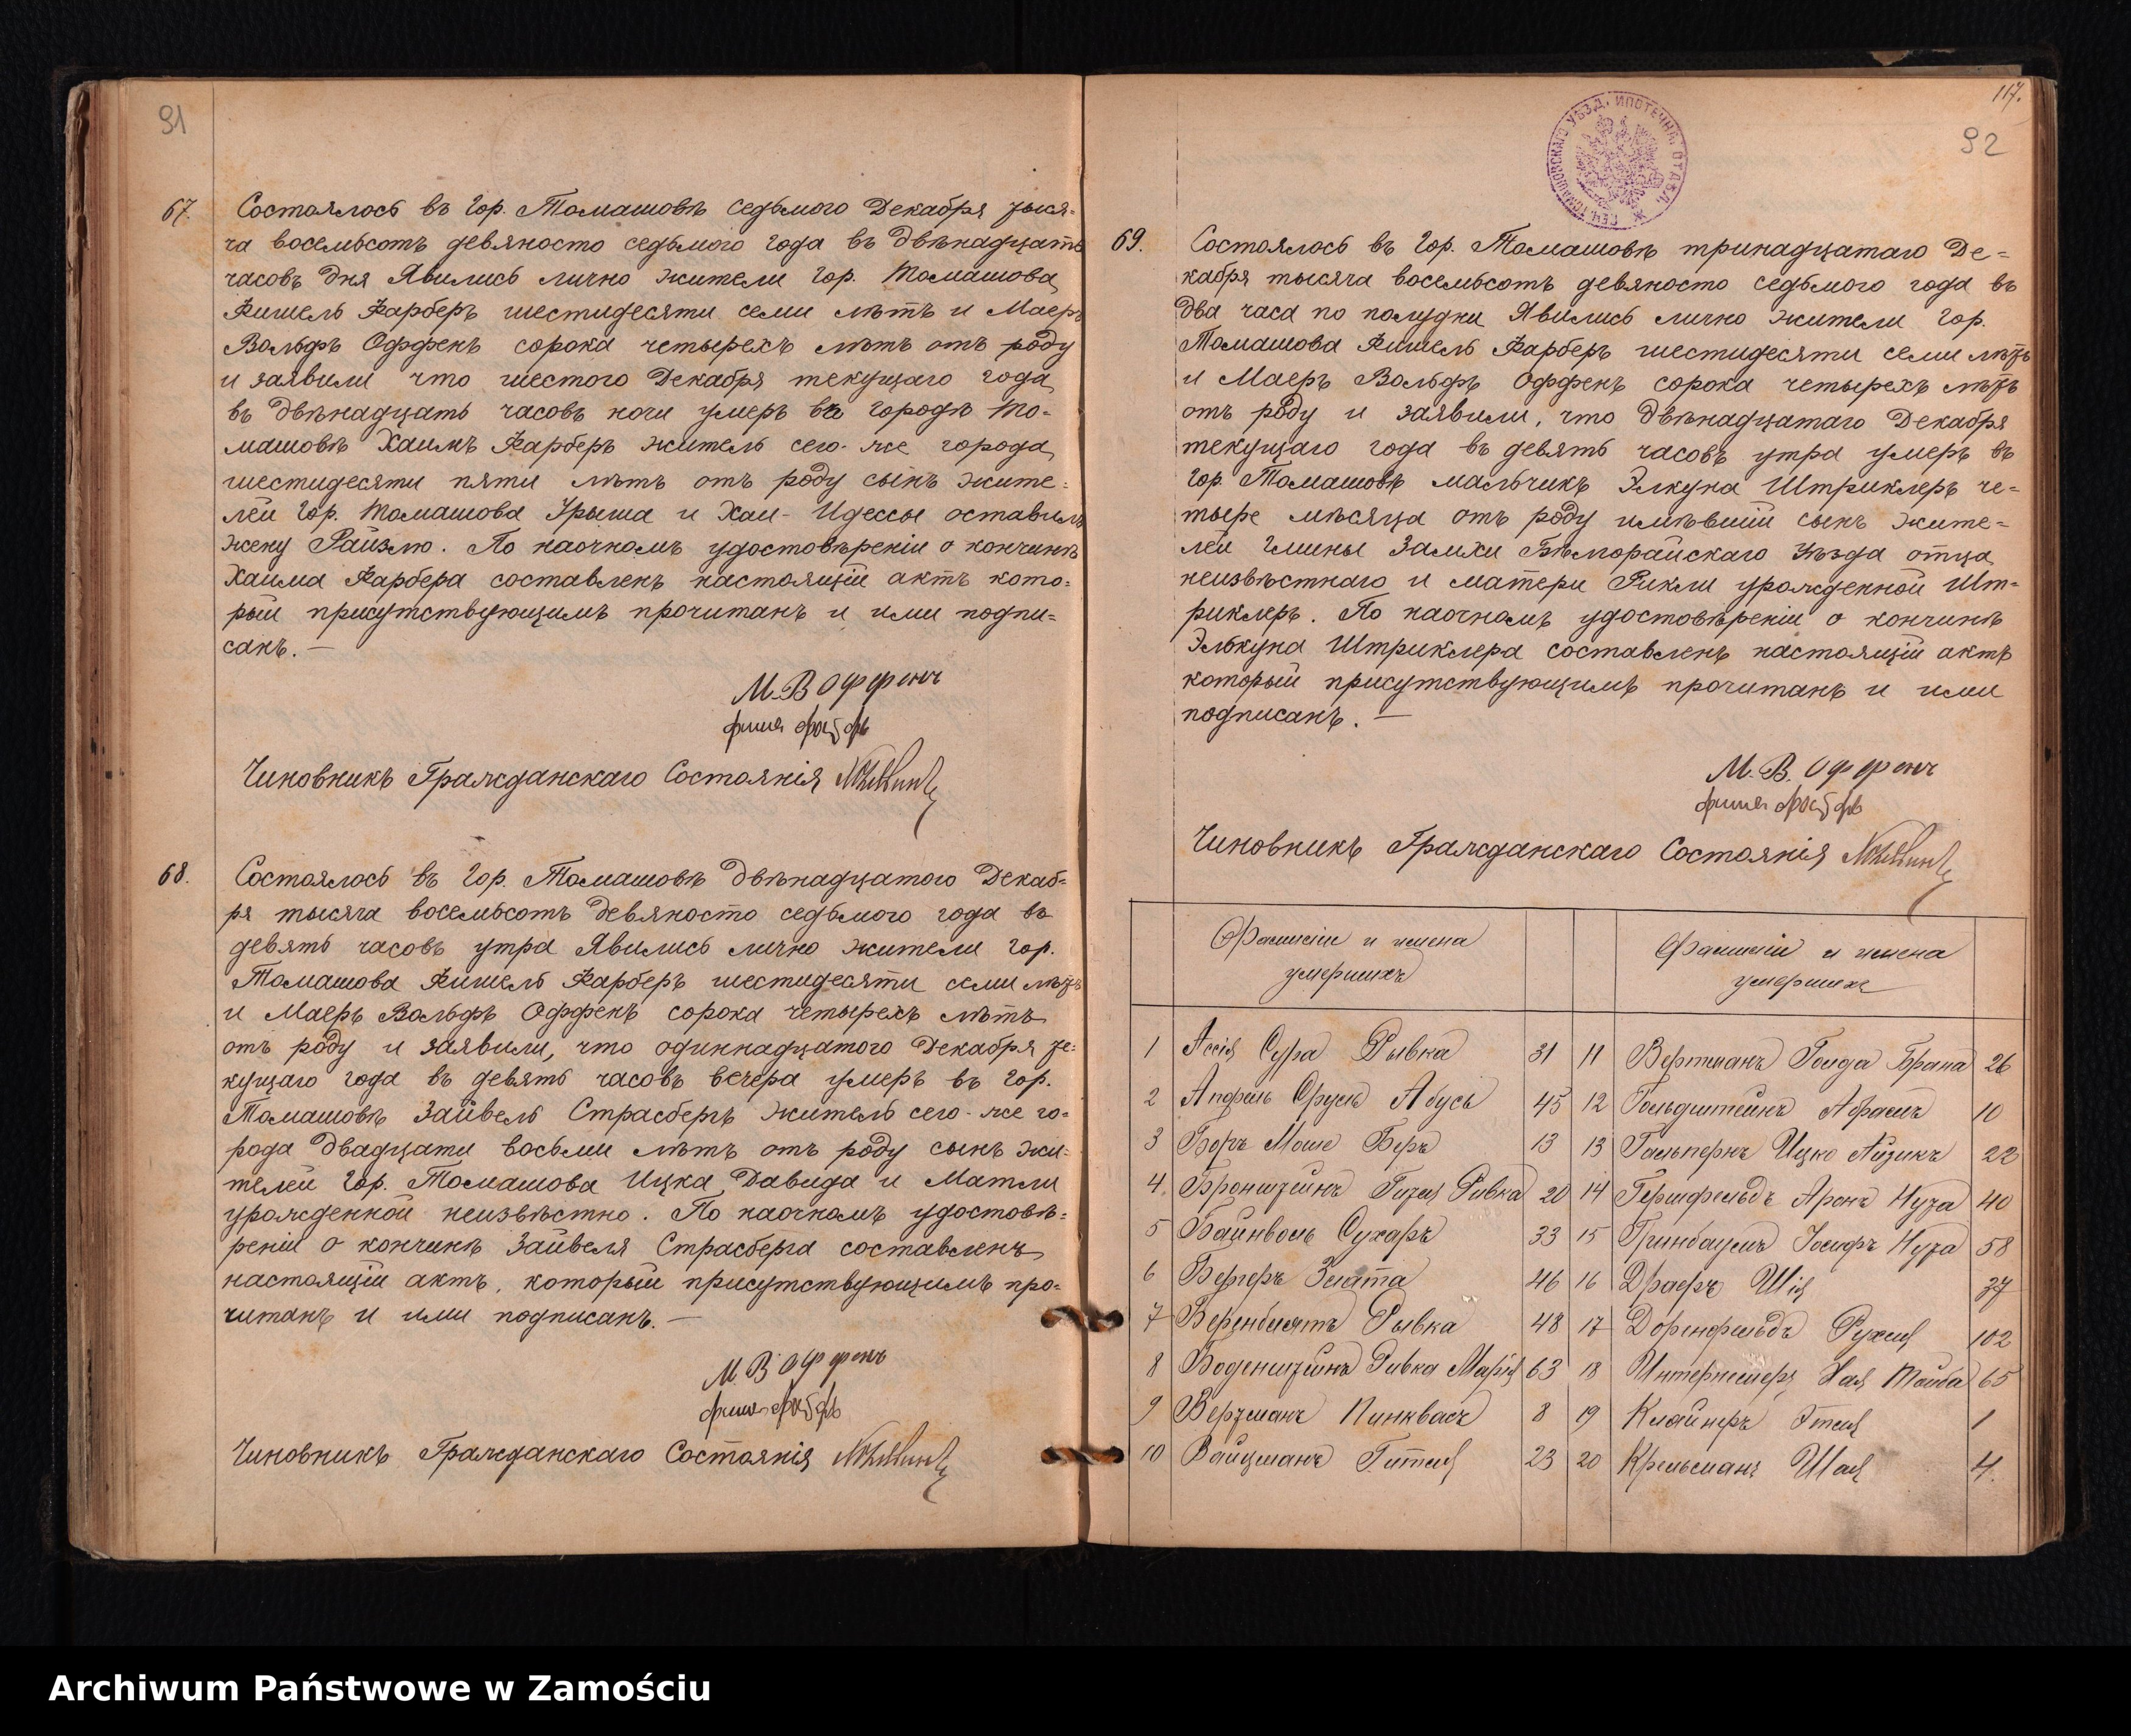 91
67.
Состоялось въ Гор. Томашовѣ седьмого Декабря тыся-
ча восемьсотъ девяносто седьмого года въ двѣнадцать
часовъ дня Явились лично жители Гор. Томашова
Фишель Фарберъ шестидесяти семи лѣтъ и Маеръ
Вольфъ Оффенъ сорока четырехъ лѣтъ отъ роду
и заявили что шестого Декабря текущаго года
въ двѣнадцать часовъ ночи умеръ въ городѣ То-
машовѣ Хаимъ Фарберъ житель сего-же города
шестидесяти пяти лѣтъ отъ роду сынъ жите-
лей Гор. Томашова Урыша и Хаи-Идессы оставилъ
жену Райзлю. По наочномъ удостовѣреніи о кончинѣ
Хаима Фарбера составленъ настоящій актъ кото-
рый присутствующимъ прочитанъ и ими подпи-
санъ. —
М. В Оффенъ
Чиновникъ Гражданскаго Состоянія
68.
Состоялось въ Гор. Томашовѣ двѣнадцатого Декаб-
ря тысяча восемьсотъ девяносто седьмого года въ
девять часовъ утра Явились лично жители Гор.
Томашова Фишель Фарберъ шестидесяти семи лѣтъ
и Маеръ Вольфъ Оффенъ сорока четырехъ лѣтъ
отъ роду и заявили, что одиннадцатого Декабря те-
кущаго года въ девять часовъ вечера умеръ въ Гор.
Томашовѣ Зайвель Страсбергъ житель сего-же го-
рода двадцати восьми лѣтъ отъ роду сынъ жи-
телей Гор. Томашова Ицка Давида и Матли
урожденной неизвѣстно. По наочномъ удостовѣ-
реніи о кончинѣ Зайвеля Страсберга составленъ
настоящій актъ, который присутствующимъ про-
читанъ и ими подписанъ. —
М. В Оффенъ
Чиновникъ Гражданскаго Состоянія
117.
92
ТОМАШОВСКАГО УѢЗД. ИПОТЕЧН. ОТДѢЛ.
69.
Состоялось въ Гор. Томашовѣ тринадцатаго Де-
кабря тысяча восемьсотъ девяносто седьмого года въ
два часа по полудни Явились лично жители Гор.
Томашова Фишель Фарберъ шестидесяти семи лѣтъ
и Маеръ Вольфъ Оффенъ сорока четырехъ лѣтъ
отъ роду и заявили, что двѣнадцатаго Декабря
текущаго года въ девять часовъ утра умеръ въ
Гор. Томашовѣ мальчикъ Элкуна Штриклеръ че-
тыре мѣсяца отъ роду имѣвшій сынъ жите-
лей Гмины Замхи Бѣлгорайскаго Уѣзда отца
неизвѣстнаго и матери Рикли урожденной Шт-
риклеръ. По наочномъ удостовѣреніи о кончинѣ
Элькуна Штриклера составленъ настоящій актъ
который присутствующимъ прочитанъ и ими
подписанъ. —
М. В. Оффенъ
Чиновникъ Гражданскаго Состоянія
Фамиліи и имена умершихъ
Фамиліи и имена умершихъ
1 Ассія Сура Рывка 31
2 Апфель Сруль Абусь 45
3 Боръ Моше Беръ 13
4. Бронштейнъ Гитля Ривка 20
5 Байнволь Сухаръ 33
6 Бергеръ Злата 46
7 Беренблятъ Рывка 48
8 Боденштейнъ Ривка Марія 63
9 Верцманъ Пинквасъ 8
10 Вайцманъ Гитля 23
11 Вертманъ Голда Брана 26
12 Гольдштейнъ Абрамъ 10
13 Гальпернъ Ицко Айзикъ 22
14 Гершфельдъ Аронъ Нута 40
15 Гринбаумъ Іосифъ Нута 58
16 Драеръ Шія 37
17 Доренфельдъ Рухля 102
18 Хая Тауба 65
19 Клайнеръ Этля 1
20 Крельманъ Шая 4.
Archiwum Państwowe w Zamościu